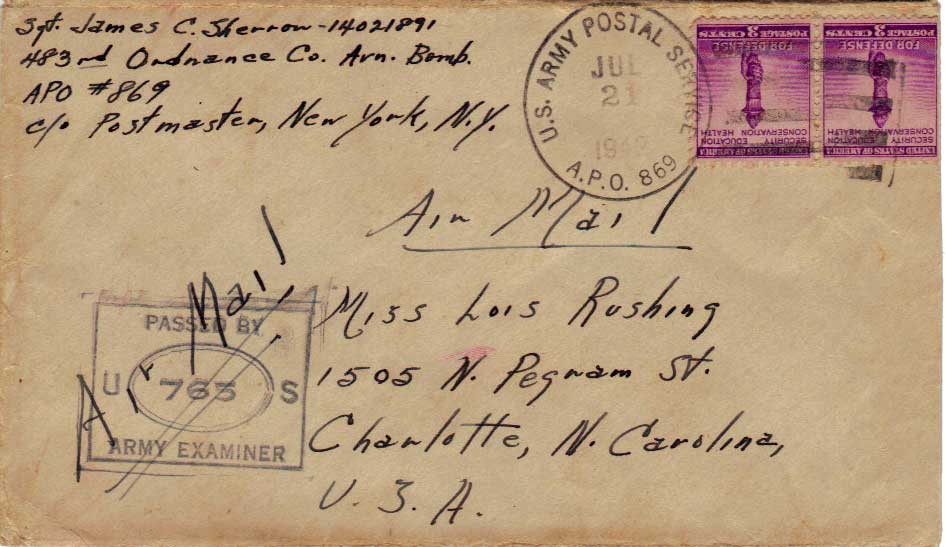 Sgt. James C. Sherrow-14021891
483rd Ordnance Co. Avn. Bomb.
APO #869
c/o Postmaster, New York, N.Y.
U.S. ARMY POSTAL SERVICE
JUL
21
A.P.O. 869
UNITED STATES OF AMERICA
SECURITY EDUCATION
CONSERVATION HEALTH
FOR DEFENSE
POSTAGE 3 CENTS
UNITED STATES OF AMERICA
SECURITY EDUCATION
CONSERVATION HEALTH
FOR DEFENSE
POSTAGE 3 CENTS
Air Mail
Air Mail
PASSED BY
U 763 S
ARMY EXAMINER
Miss Lois Rushing
1505 N. Pegram St.
Charlotte, N. Carolina,
U.S.A.